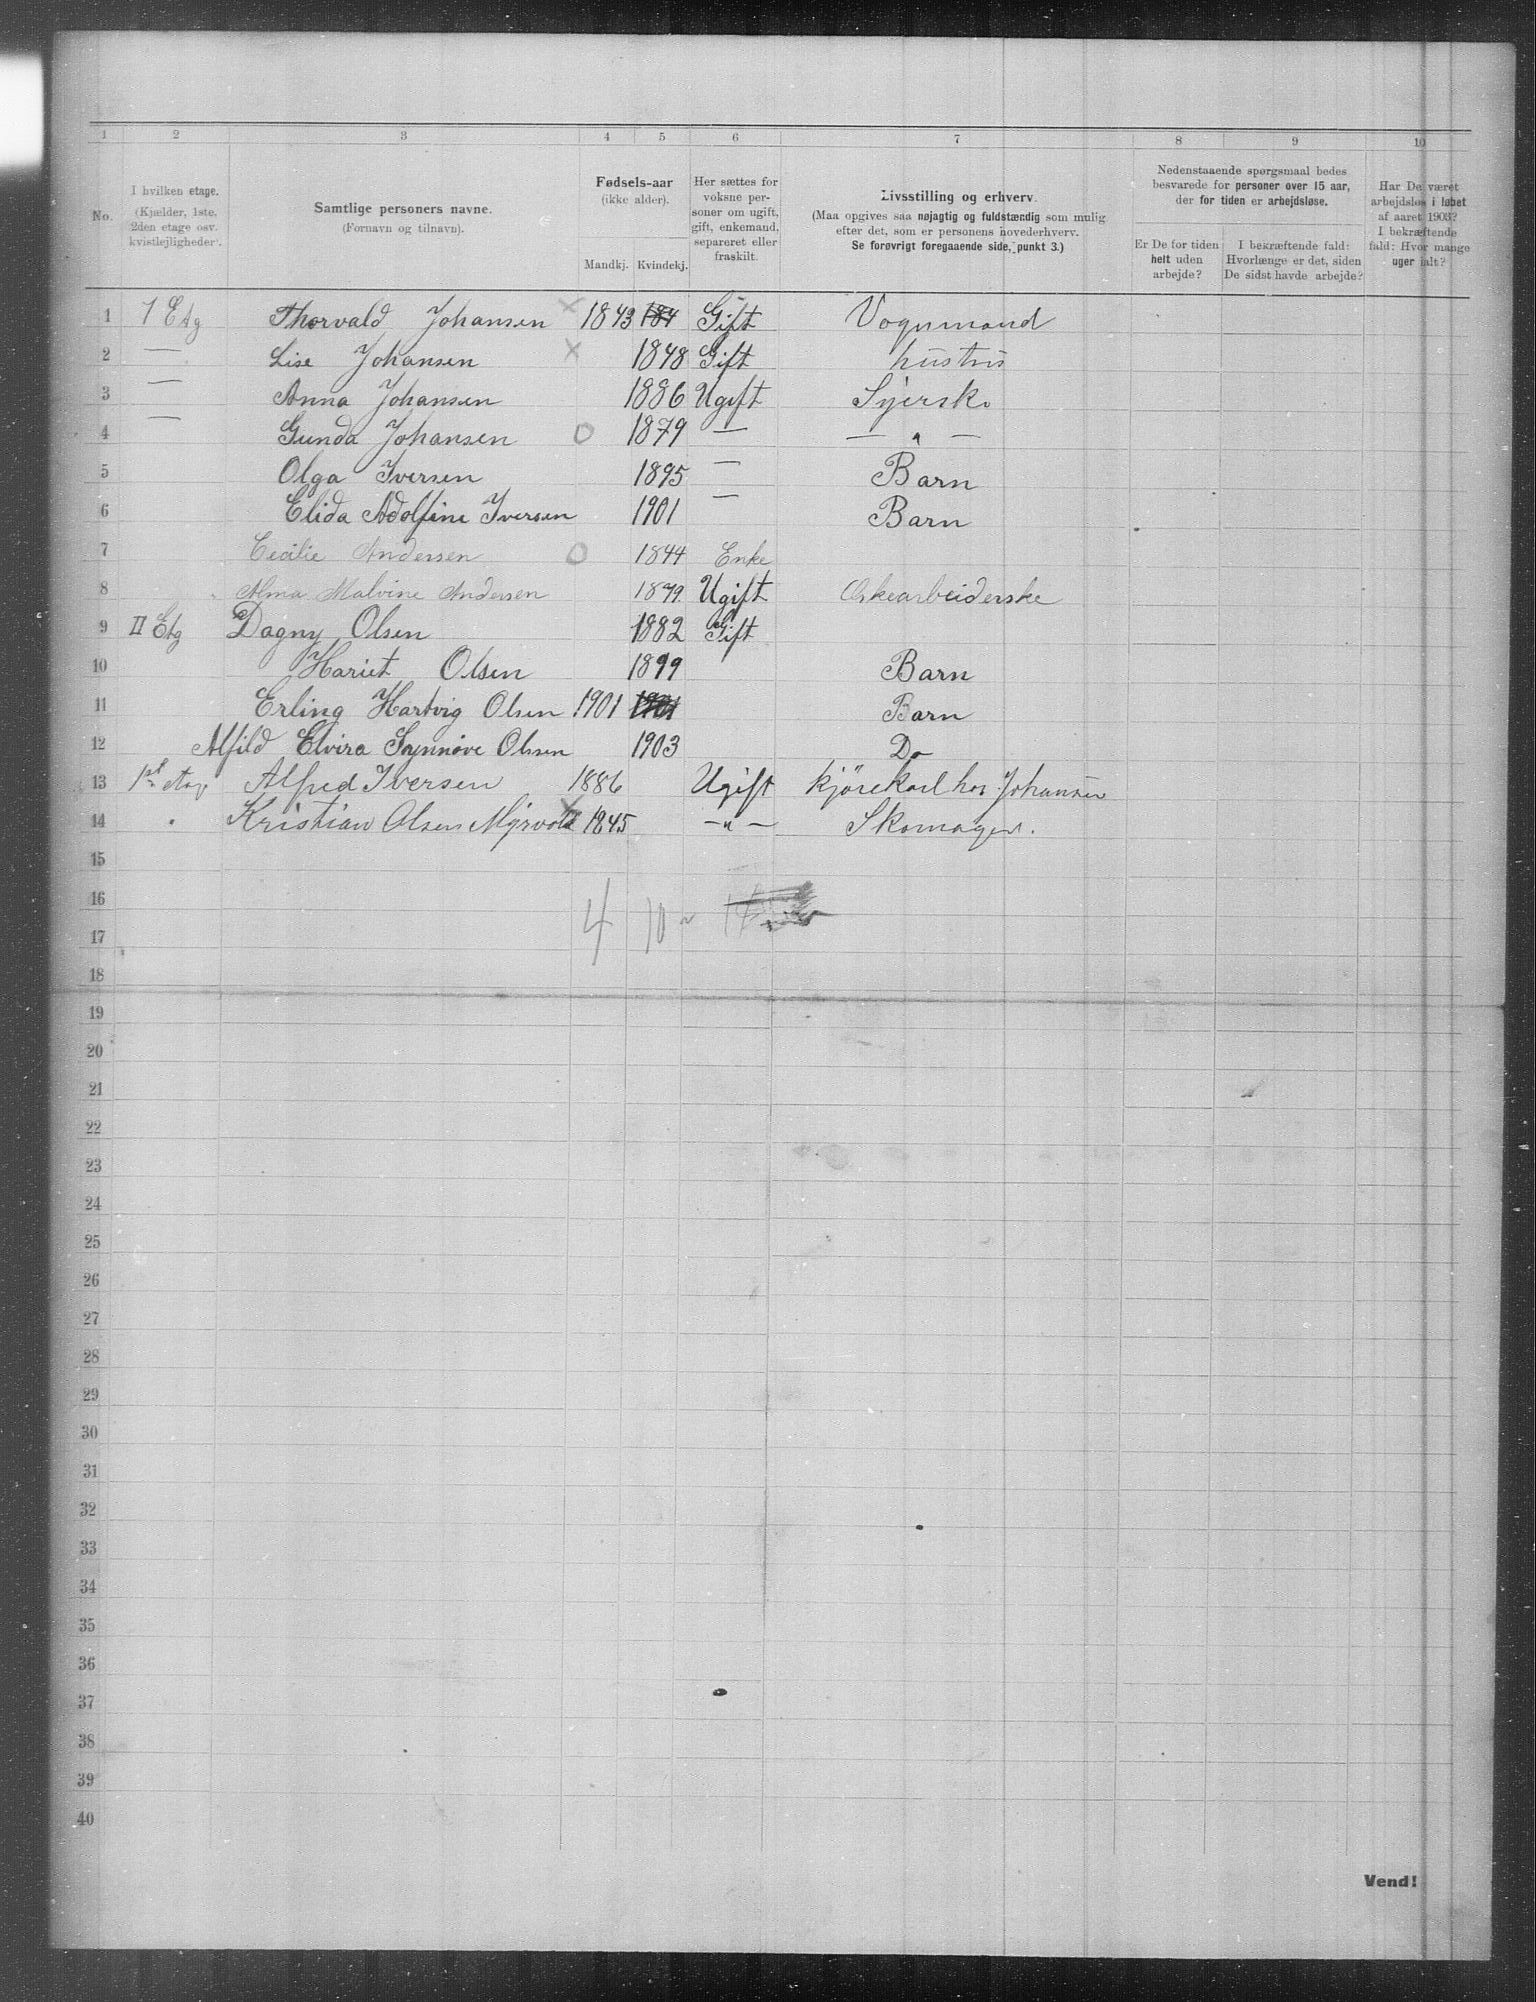 1 2 3 4 5 6 7 8 9 10
No.
I hvilken etage.
(Kjælder, 1ste, 2den etage osv. kvistlejligheder).
Samtlige personers navne.
(Fornavn og tilnavn).
Fødsels-aar
(ikke alder).
Mandkj. Kvindekj.
Her sættes for voksne personer om ugift, gift, enkemand, separeret eller fraskilt.
Livsstilling og erhverv.
(Maa opgives saa nøjagtig og fuldstændig som mulig
efter det, som er personens hovederhverv.
Se forøvrigt foregaaende side, punkt 3.)
Nedenstaaende spørgsmaal bedes
besvarede for personer over 15 aar,
der for tiden er arbejdsløse.
Er De for tiden
helt uden
arbejde?
I bekræftende fald:
Hvorlænge er det, siden
De sidst havde arbejde?
Har De været
arbejdsløs i løbet
af aaret 1903?
I bekræftende
fald: Hvor mange
uger ialt?
1 1 Etg Thorvald Johansen × 1843 184 Gift Vognmand
2 — Lise Johansen × 1848 Gift hustru
3 — Anna Johansen 1886 Ugift Syerske
4 — Gunda Johansen O 1879 — — " —
5 Olga Iversen 1895 — Barn
6 Elida Adolfine Iversen 1901 — Barn
7 Cecilie Andersen O 1844 Enke
8 Alma Malvine Andersen 1879 Ugift Æskearbeiderske
9 II Etg Dagny Olsen 1882 Gift
10 Hariet Olsen 1899 Barn
11 Erling Hartvig Olsen 1901 1901 Barn
12 Alfild Elvira Synnøve Olsen 1903 Do
13 1st etag Alfred Iversen 1886 Ugift kjørekarl hos Johansen
14 " Kristian Olsen Myrvold × 1845 — " — Skomager.
15
16
4 10
17
18
19
20
21
22
23
24
25
26
27
28
29
30
31
32
33
34
35
36
37
38
39
40
Vend!